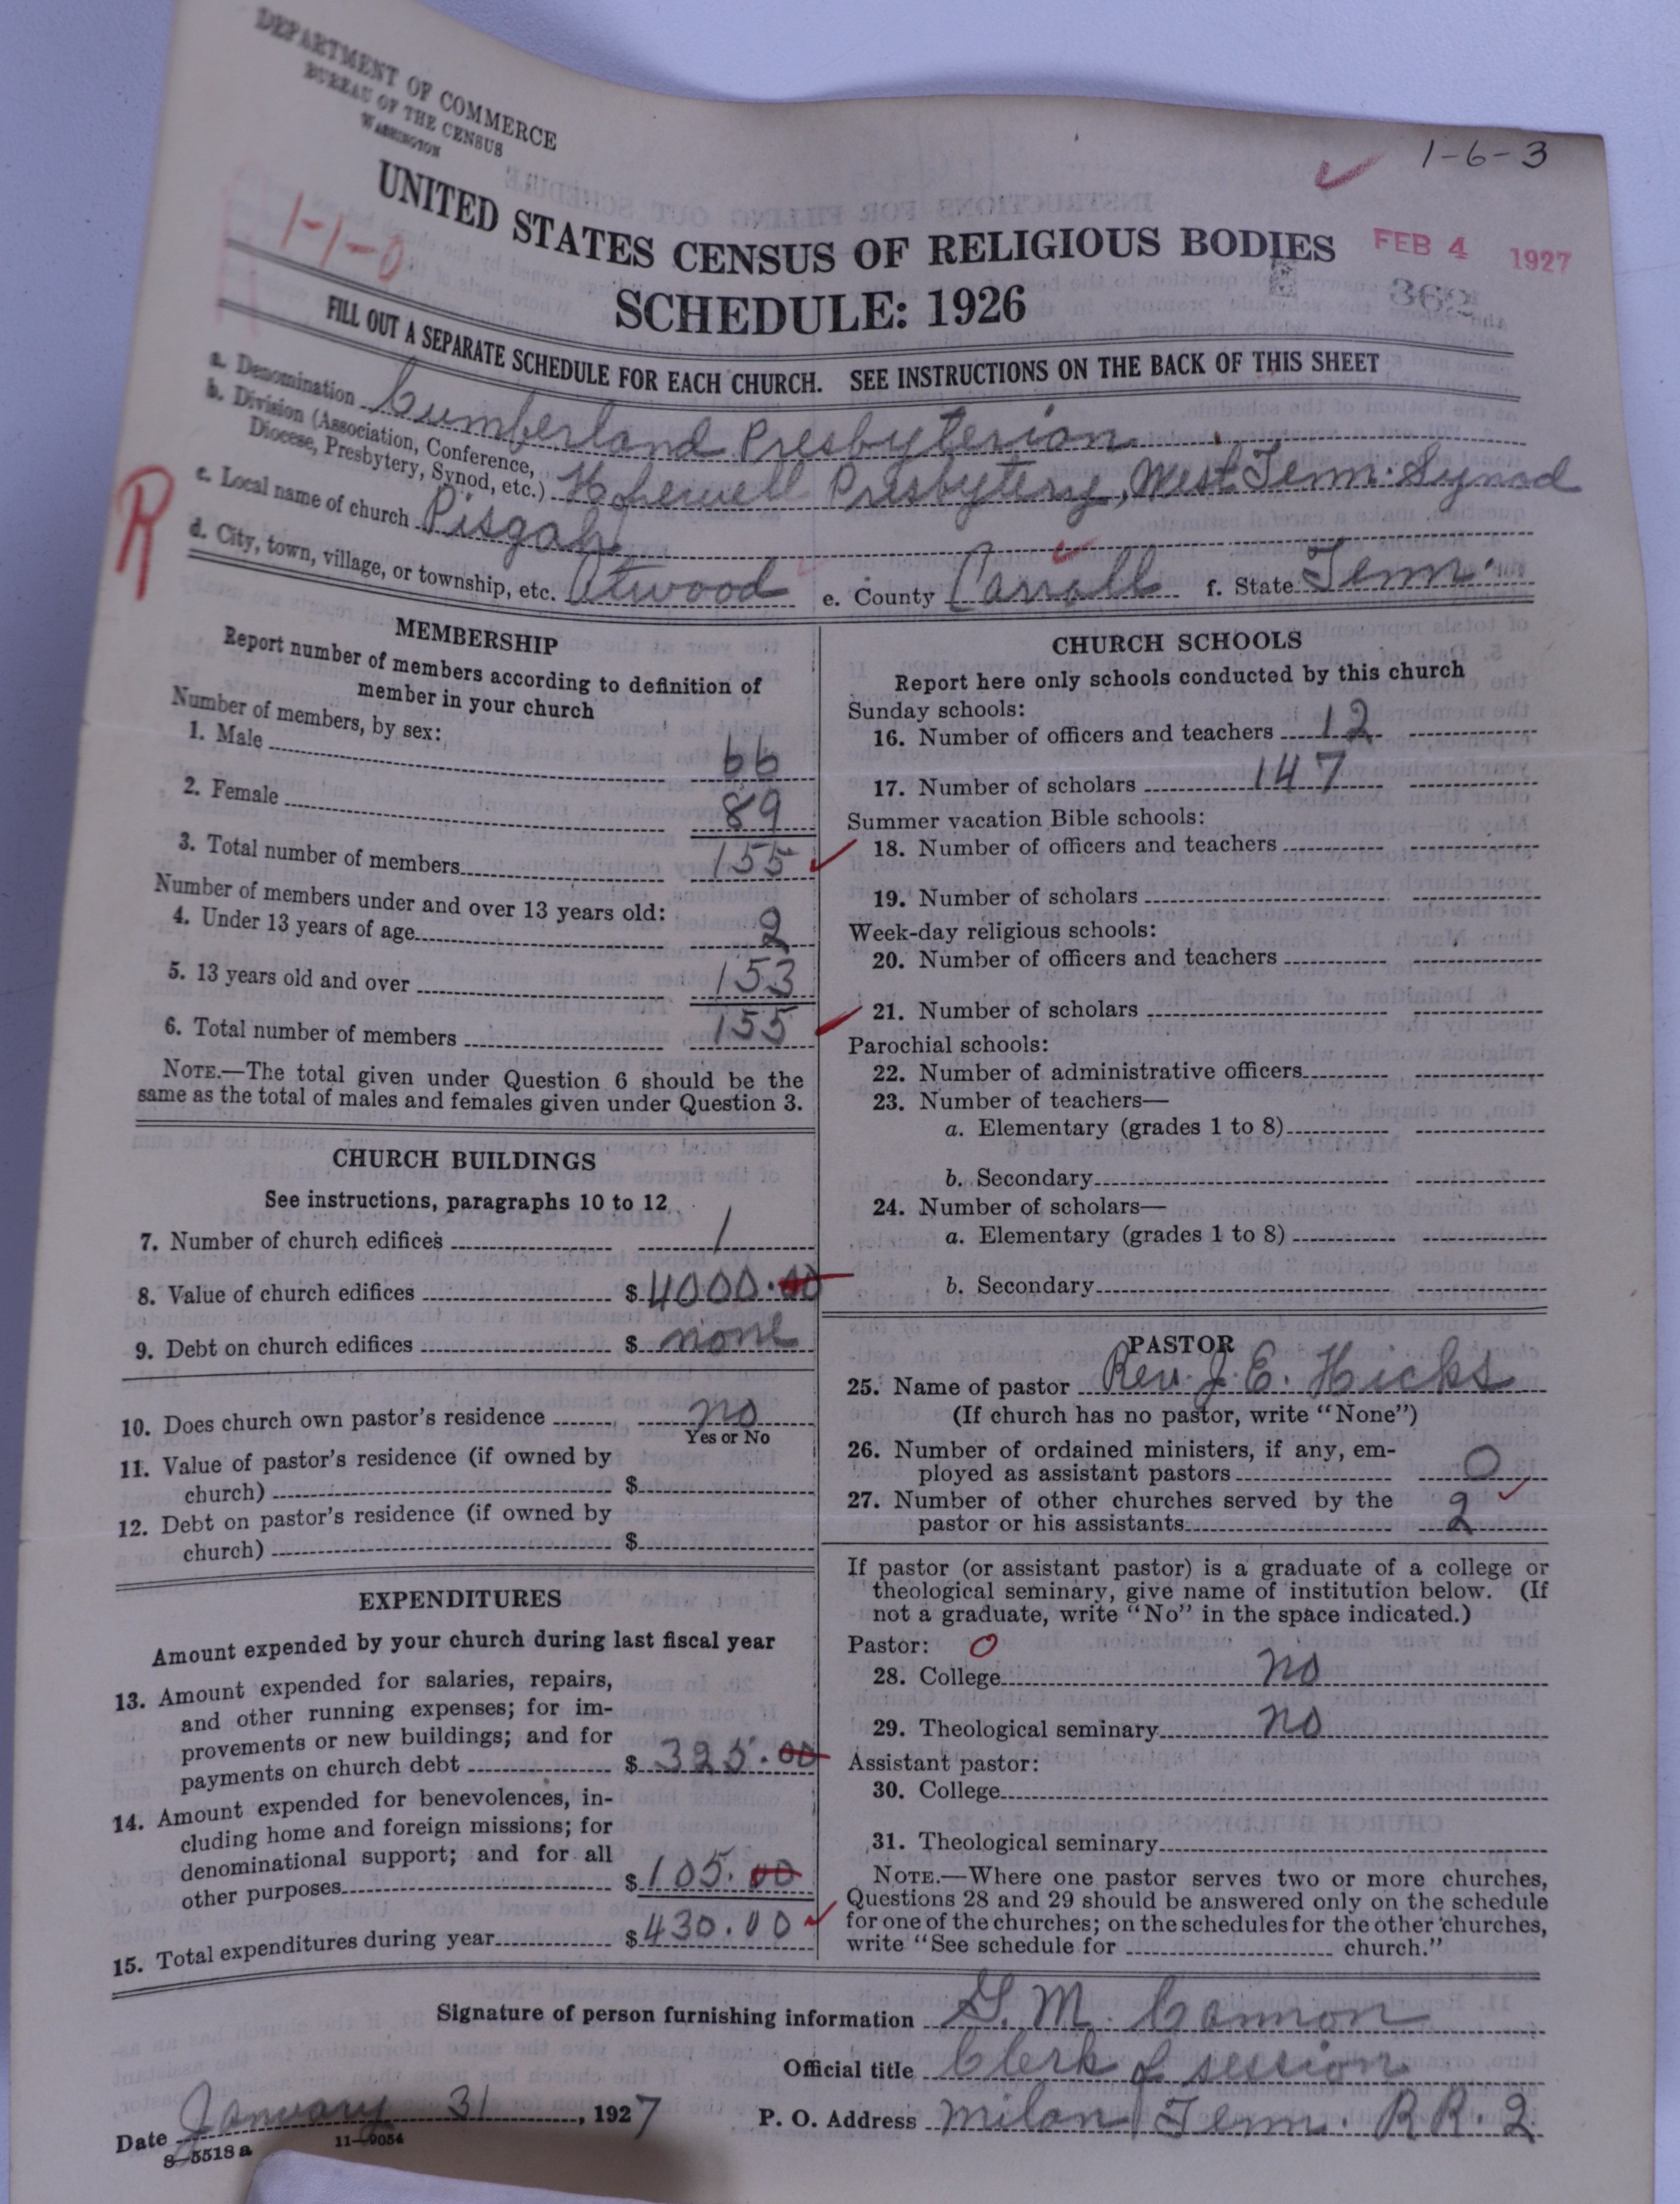 DEPARTMENT OF COMMERCE
BUREAU OF THE CENSUS
WASHINGTON
1-6-3
1-1-0
UNITED STATES CENSUS OF RELIGIOUS BODIES
FEB 4 1927
SCHEDULE: 1926
FILL OUT A SEPARATE SCHEDULE FOR EACH CHURCH. SEE INSTRUCTIONS ON THE BACK OF THIS SHEET
R
a. Denomination Cumberland Presbyterian
b. Division (Association, Conference, Diocese, Presbytery, Synod, etc.) Hopewell Presbytery, West Tenn. Synod
c. Local name of church Pisgah
d. City, town, village, or township, etc. Atwood e. County Carroll f. State Tenn.
MEMBERSHIP
Report number of members according to definition of
member in your church
Number of members, by sex:
1. Male 66
2. Female 89
3. Total number of members 155
Number of members under and over 13 years old:
4. Under 13 years of age 2
5. 13 years old and over 153
6. Total number of members 155
NOTE.—The total given under Question 6 should be the
same as the total of males and females given under Question 3.
CHURCH BUILDINGS
See instructions, paragraphs 10 to 12
7. Number of church edifices 1
8. Value of church edifices $ 4000.00
9. Debt on church edifices $ none
10. Does church own pastor's residence no
Yes or No
11. Value of pastor's residence (if owned by
church) $
12. Debt on pastor's residence (if owned by
church) $
EXPENDITURES
Amount expended by your church during last fiscal year
13. Amount expended for salaries, repairs,
and other running expenses; for im-
provements or new buildings; and for
payments on church debt $ 325.00
14. Amount expended for benevolences, in-
cluding home and foreign missions; for
denominational support; and for all
other purposes $ 105.00
15. Total expenditures during year $ 430.00
CHURCH SCHOOLS
Report here only schools conducted by this church
Sunday schools:
16. Number of officers and teachers 12
17. Number of scholars 147
Summer vacation Bible schools:
18. Number of officers and teachers
19. Number of scholars
Week-day religious schools:
20. Number of officers and teachers
21. Number of scholars
Parochial schools:
22. Number of administrative officers
23. Number of teachers—
a. Elementary (grades 1 to 8)
b. Secondary
24. Number of scholars—
a. Elementary (grades 1 to 8)
b. Secondary
PASTOR
25. Name of pastor Rev. J. E. Hicks
(If church has no pastor, write "None")
26. Number of ordained ministers, if any, em-
ployed as assistant pastors 0
27. Number of other churches served by the
pastor or his assistants 2
If pastor (or assistant pastor) is a graduate of a college or
theological seminary, give name of institution below. (If
not a graduate, write "No" in the space indicated.)
Pastor: 0
28. College no
29. Theological seminary no
Assistant pastor:
30. College
31. Theological seminary
NOTE.—Where one pastor serves two or more churches,
Questions 28 and 29 should be answered only on the schedule
for one of the churches; on the schedules for the other churches,
write "See schedule for church."
Signature of person furnishing information G. M. Cannon
Official title Clerk of session
Date January 31, 1927 P. O. Address Milan Tenn. RR. 2
8-5518 a 11-9054